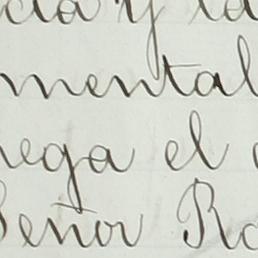 cia y la
mental
nega el
Señor Ro